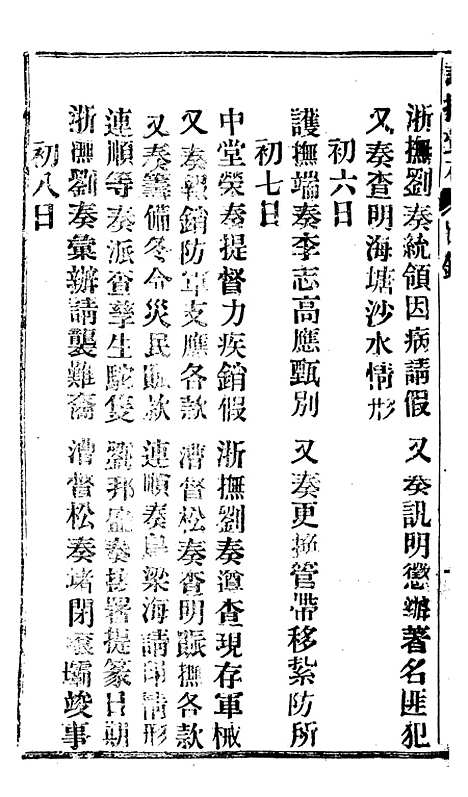 浙撫劉奏統領因病請假　又奏訊明懲辦著名匪犯
又奏查明海塘沙水情形
初六日
護撫端奏李志高應甄別　又奏更換管帶移紮防所
初七日
中堂榮奏提督力疾銷假　浙撫劉奏遵查現存軍械
又奏報銷防軍支應各款　漕督松奏查明賑撫各款
又奏籌備冬令災民賑款　連順奏 梁海請 情形
連順等奏派查孳生駝隻　劉邦盛奏接署提篆日期
浙撫劉奏彙辦請襲難裔　漕督松奏堵閉 壩竣事
初八日